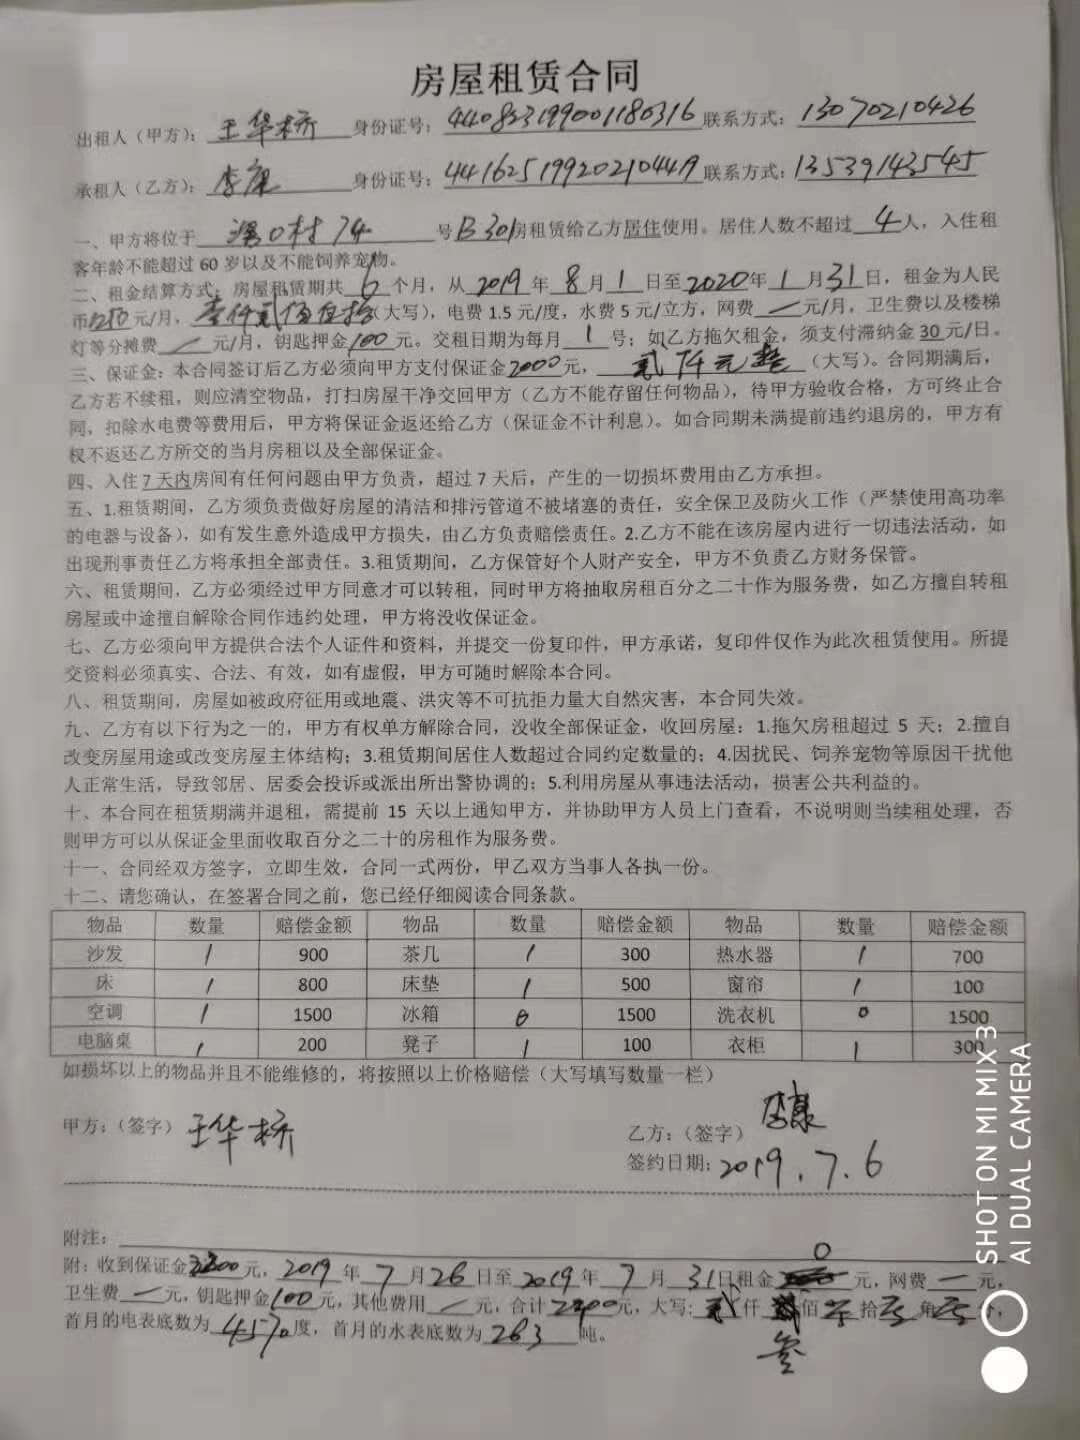 房屋租赁合同
出租人（甲方）：王华桥 身份证号：440823199001180316 联系方式：13070210426
承租人（乙方）：李康 身份证号：441625199202104419 联系方式：13539143545
一、甲方将位于 村74 号B301房租赁给乙方居住使用。居住人数不超过 4 人，入住租
客年龄不能超过 60 岁以及不能饲养宠物。
二、租金结算方式：房屋租赁期共 6 个月，从 2019 年 8 月 1 日至 2020 年 1 月 31 日，租金为人民
币 元/月，壹仟贰佰 拾（大写），电费 1.5 元/度，水费 5 元/立方，网费 一 元/月，卫生费以及楼梯
灯等分摊费 一 元/月，钥匙押金 100 元。交租日期为每月 1 号；如乙方拖欠租金，须支付滞纳金 30 元/日。
三、保证金：本合同签订后乙方必须向甲方支付保证金 2000 元，贰仟元整（大写）。合同期满后，
乙方若不续租，则应清空物品，打扫房屋干净交回甲方（乙方不能存留任何物品），待甲方验收合格，方可终止合
同，扣除水电费等费用后，甲方将保证金返还给乙方（保证金不计利息）。如合同期未满提前违约退房的，甲方有
权不返还乙方所交的当月房租以及全部保证金。
四、入住 7 天内房间有任何问题由甲方负责，超过 7 天后，产生的一切损坏费用由乙方承担。
五、1.租赁期间，乙方须负责做好房屋的清洁和排污管道不被堵塞的责任，安全保卫及防火工作（严禁使用高功率
的电器与设备），如有发生意外造成甲方损失，由乙方负责赔偿责任。2.乙方不能在该房屋内进行一切违法活动，如
出现刑事责任乙方将承担全部责任。3.租赁期间，乙方保管好个人财产安全，甲方不负责乙方财务保管。
六、租赁期间，乙方必须经过甲方同意才可以转租，同时甲方将抽取房租百分之二十作为服务费，如乙方擅自转租
房屋或中途擅自解除合同作违约处理，甲方将没收保证金。
七、乙方必须向甲方提供合法个人证件和资料，并提交一份复印件，甲方承诺，复印件仅作为此次租赁使用。所提
交资料必须真实、合法、有效，如有虚假，甲方可随时解除本合同。
八、租赁期间，房屋如被政府征用或地震、洪灾等不可抗拒力量大自然灾害，本合同失效。
九、乙方有以下行为之一的，甲方有权单方解除合同，没收全部保证金，收回房屋：1.拖欠房租超过 5 天；2.擅自
改变房屋用途或改变房屋主体结构；3.租赁期间居住人数超过合同约定数量的；4.因扰民、饲养宠物等原因干扰他
人正常生活，导致邻居、居委会投诉或派出所出警协调的；5.利用房屋从事违法活动，损害公共利益的。
十、本合同在租赁期满并退租，需提前 15 天以上通知甲方，并协助甲方人员上门查看，不说明则当续租处理，否
则甲方可以从保证金里面收取百分之二十的房租作为服务费。
十一、合同经双方签字，立即生效，合同一式两份，甲乙双方当事人各执一份。
十二、请您确认，在签署合同之前，您已经仔细阅读合同条款。
物品 数量 赔偿金额 物品 数量 赔偿金额 物品 数量 赔偿金额
沙发 1 900 茶几 1 300 热水器 1 700
床 1 800 床垫 1 500 窗帘 1 100
空调 1 1500 冰箱 0 1500 洗衣机 0 1500
电脑桌 1 200 凳子 1 100 衣柜 1 300
如损坏以上的物品并且不能维修的，将按照以上价格赔偿（大写填写数量一栏）
甲方：（签字）王华桥
乙方：（签字）李康
签约日期：2019.7.6
附注：
附：收到保证金 元，2019 年 7 月 26 日至 2019 年 7 月 31 日租金 0 元，网费 一 元，
卫生费 一 元，钥匙押金 100 元，其他费用 一 元，合计 元，大写：贰 仟 叁 佰 零 拾 角 分，
首月的电表底数为 4570 度，首月的水表底数为 263 吨。
SHOT ON MI MIX 3
AI DUAL CAMERA